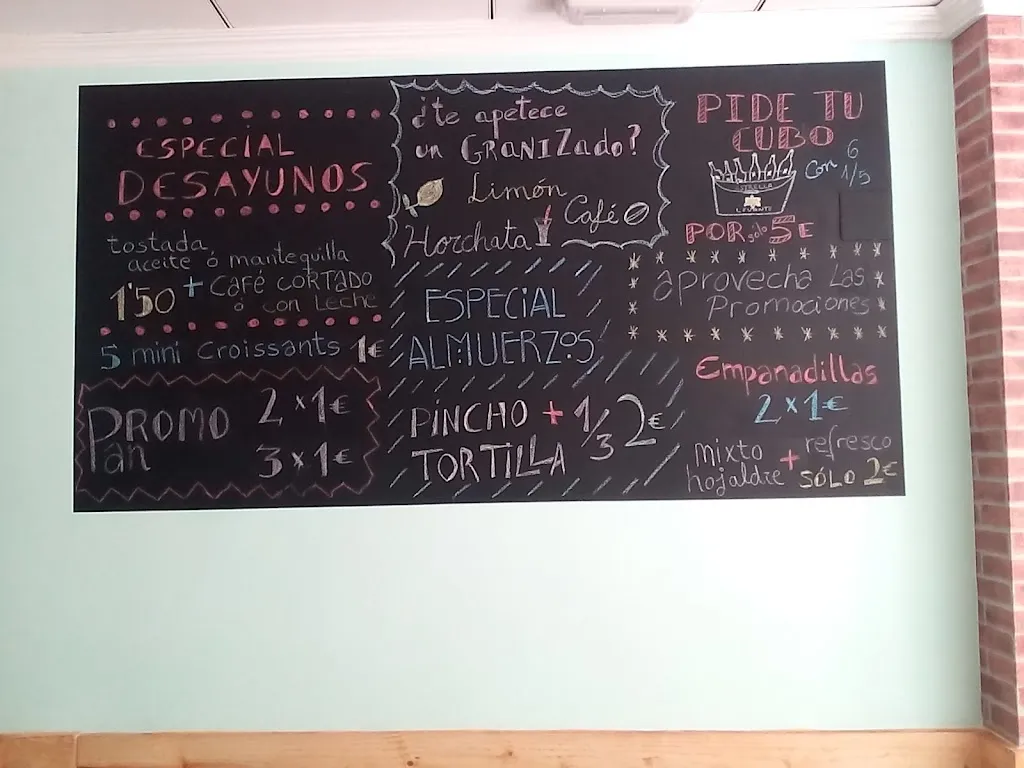 ESPECIAL
DESAYUNOS
tostada,
aceite ó mantequilla
1'50 + CAFÉ CORTADO
ó con Leche
5 mini croissants 1€
PROMO 2x1€
Pan 3x1€
¿te apetece
un GRANIZado?
Limón
Café
Horchata
ESPECIAL
ALMUERZOS
PINCHO + 1/3 2€
TORTILLA
PIDE TU
CUBO
Con 6
1/5
ESTRELLA
LEVANTE
POR sólo 5E
aprovecha Las
Promociones
Empanadillas
2x1€
mixto + refresco
hojaldre SÓLO 2€